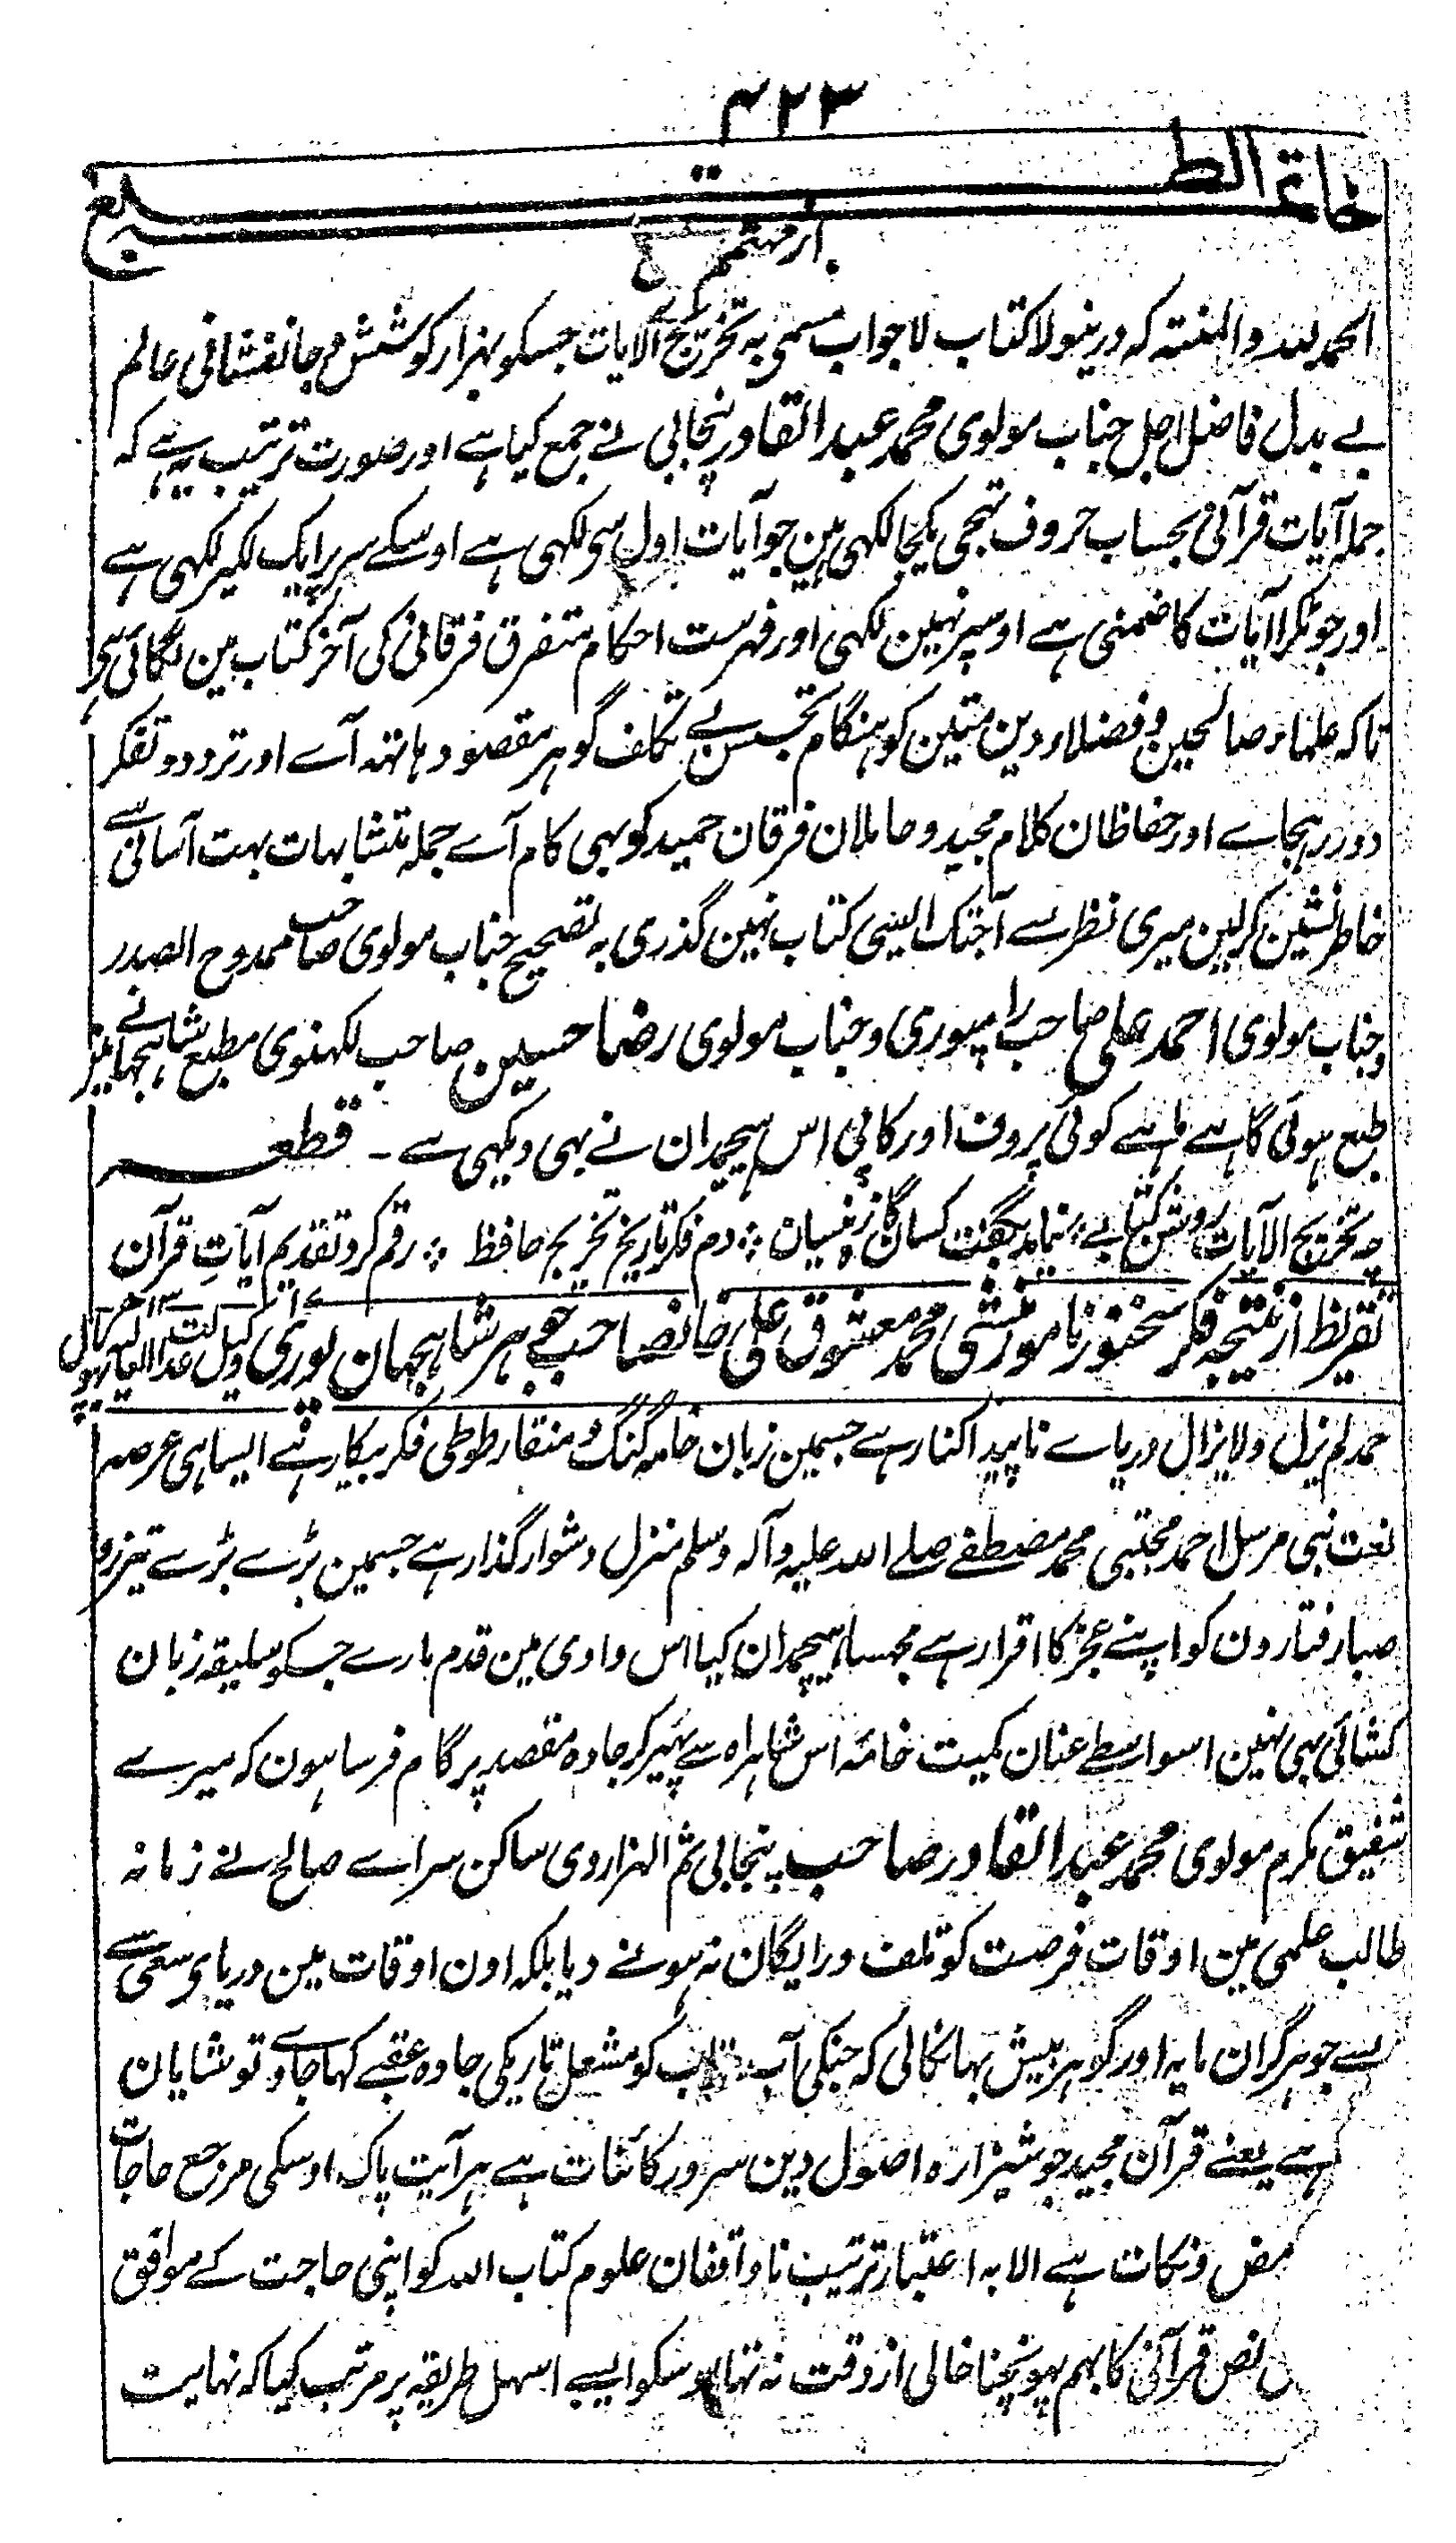 ۴۲۳
خاتمة الطبع
از مہتمم
الحمد لله والمنته که درینولا کتاب لاجواب مسمی به تخریج الآیات جسکو بہزار کوشش و جانفشانی عالم
بے بدل فاضل اجل جناب مولوی محمد عبد القادر پنجابی نے جمع کیا ہے اور صورت ترتیب یہ ہے کہ
جملہ آیات قرآنی بحساب حروف تہجی یکجا لکہی ہین جو آیات اول سی لکہی ہے اوسکے سر پر ایک لکیر لکہی ہے
اور جو ٹکڑا آیات کا ضمنی ہے اوسپر نہین لکہی اور فہرست احکام متفرق فرقانی کی آخر کتاب مین لگائی ہی
تاکہ علماء صالحین و فضلاء دین متین کو ہنگام تجسس بے تکلف گوہر مقصود ہاتہہ آے اور تردد و تفکر
دور رہجاے اور حفاظان کلام مجید و حاملان فرقان حمید کو بہی کام آے جملہ متشابہات بہت آسانی سے
خاطر نشین کرلین میری نظر سے آجتک ایسی کتاب نہین گذری به تصحیح جناب مولوی صاحب ممدوح الصدر
وجناب مولوی احمد علی صاحب رامپوری و جناب مولوی رضا حسین صاحب لکہنوی مطبع شاہجہانے مین
طبع ہوئی گاہے ماہے کوئی پروف اور کاپی اس ہیچمدان نے بہی دیکہی ہے ۔ قطعہ
چہ تخریج الآیات روشن کتابے ؛ نماید بگفت کسان ؛ دم فکر تاریخ تخریج حافظ ؛ رقم کرد تقدیم آیاتِ قرآن
تقریظ از نتیجہ فکر سخنور نامور منشی محمد معشوق علی خانصاحب جوہر شاہجہان پوری وکیل عدالت العالیہ بہوپال
حمد لم یزل ولا یزال دریاے ناپیدا کنار ہے جسمین زبان خامہ گنگ و منقار طوطی فکر بیکار ہے ایسا ہی عرصہ
نعت نبی مرسل احمد مجتبی محمد مصطفے صلے اللہ علیہ وآلہ وسلم منزل دشوار گذار ہے جسمین بڑے بڑے تیزرو
صبا رفتارون کو اپنے عجز کا اقرار ہے مجہسا ہیچمدان کیا اس وادی مین قدم مارے جسکو سلیقہ زبان
کشائی بہی نہین اسواسطے عنان کمیت خامہ اس شاہراہ سے پہیر کر جادہ مقصد پر گام فرسا ہون کہ میرے
شفیق مکرم مولوی محمد عبد القادر صاحب پنجابی ثم الہزاروی ساکن سراے صالح نے زمانہ
طالب علمی مین اوقات فرصت کو تلف و رایگان نہ ہونے دیا بلکہ اون اوقات مین دریای سعی سے
ایسے جوہر گران مایہ اور گوہر بیش بہا نکالی کہ جنکی آب و تاب کو مشعل تاریکی جادہ عقبے کہا جاوے تو شایان
ہے یعنے قرآن مجید جو شیرازہ اصول دین سرور کائنات ہے ہر آیت پاک اوسکی مرجع حاجات
و نکات ہے الا بہ اعتبار ترتیب ناواقفان علوم کتاب اللہ کو اپنی حاجت کے موافق
نص قرآنی کا بہم پہونچنا خالی از دقت نہ تہا اوسکو ایسے اسہل طریقہ پر مرتب کیا کہ نہایت